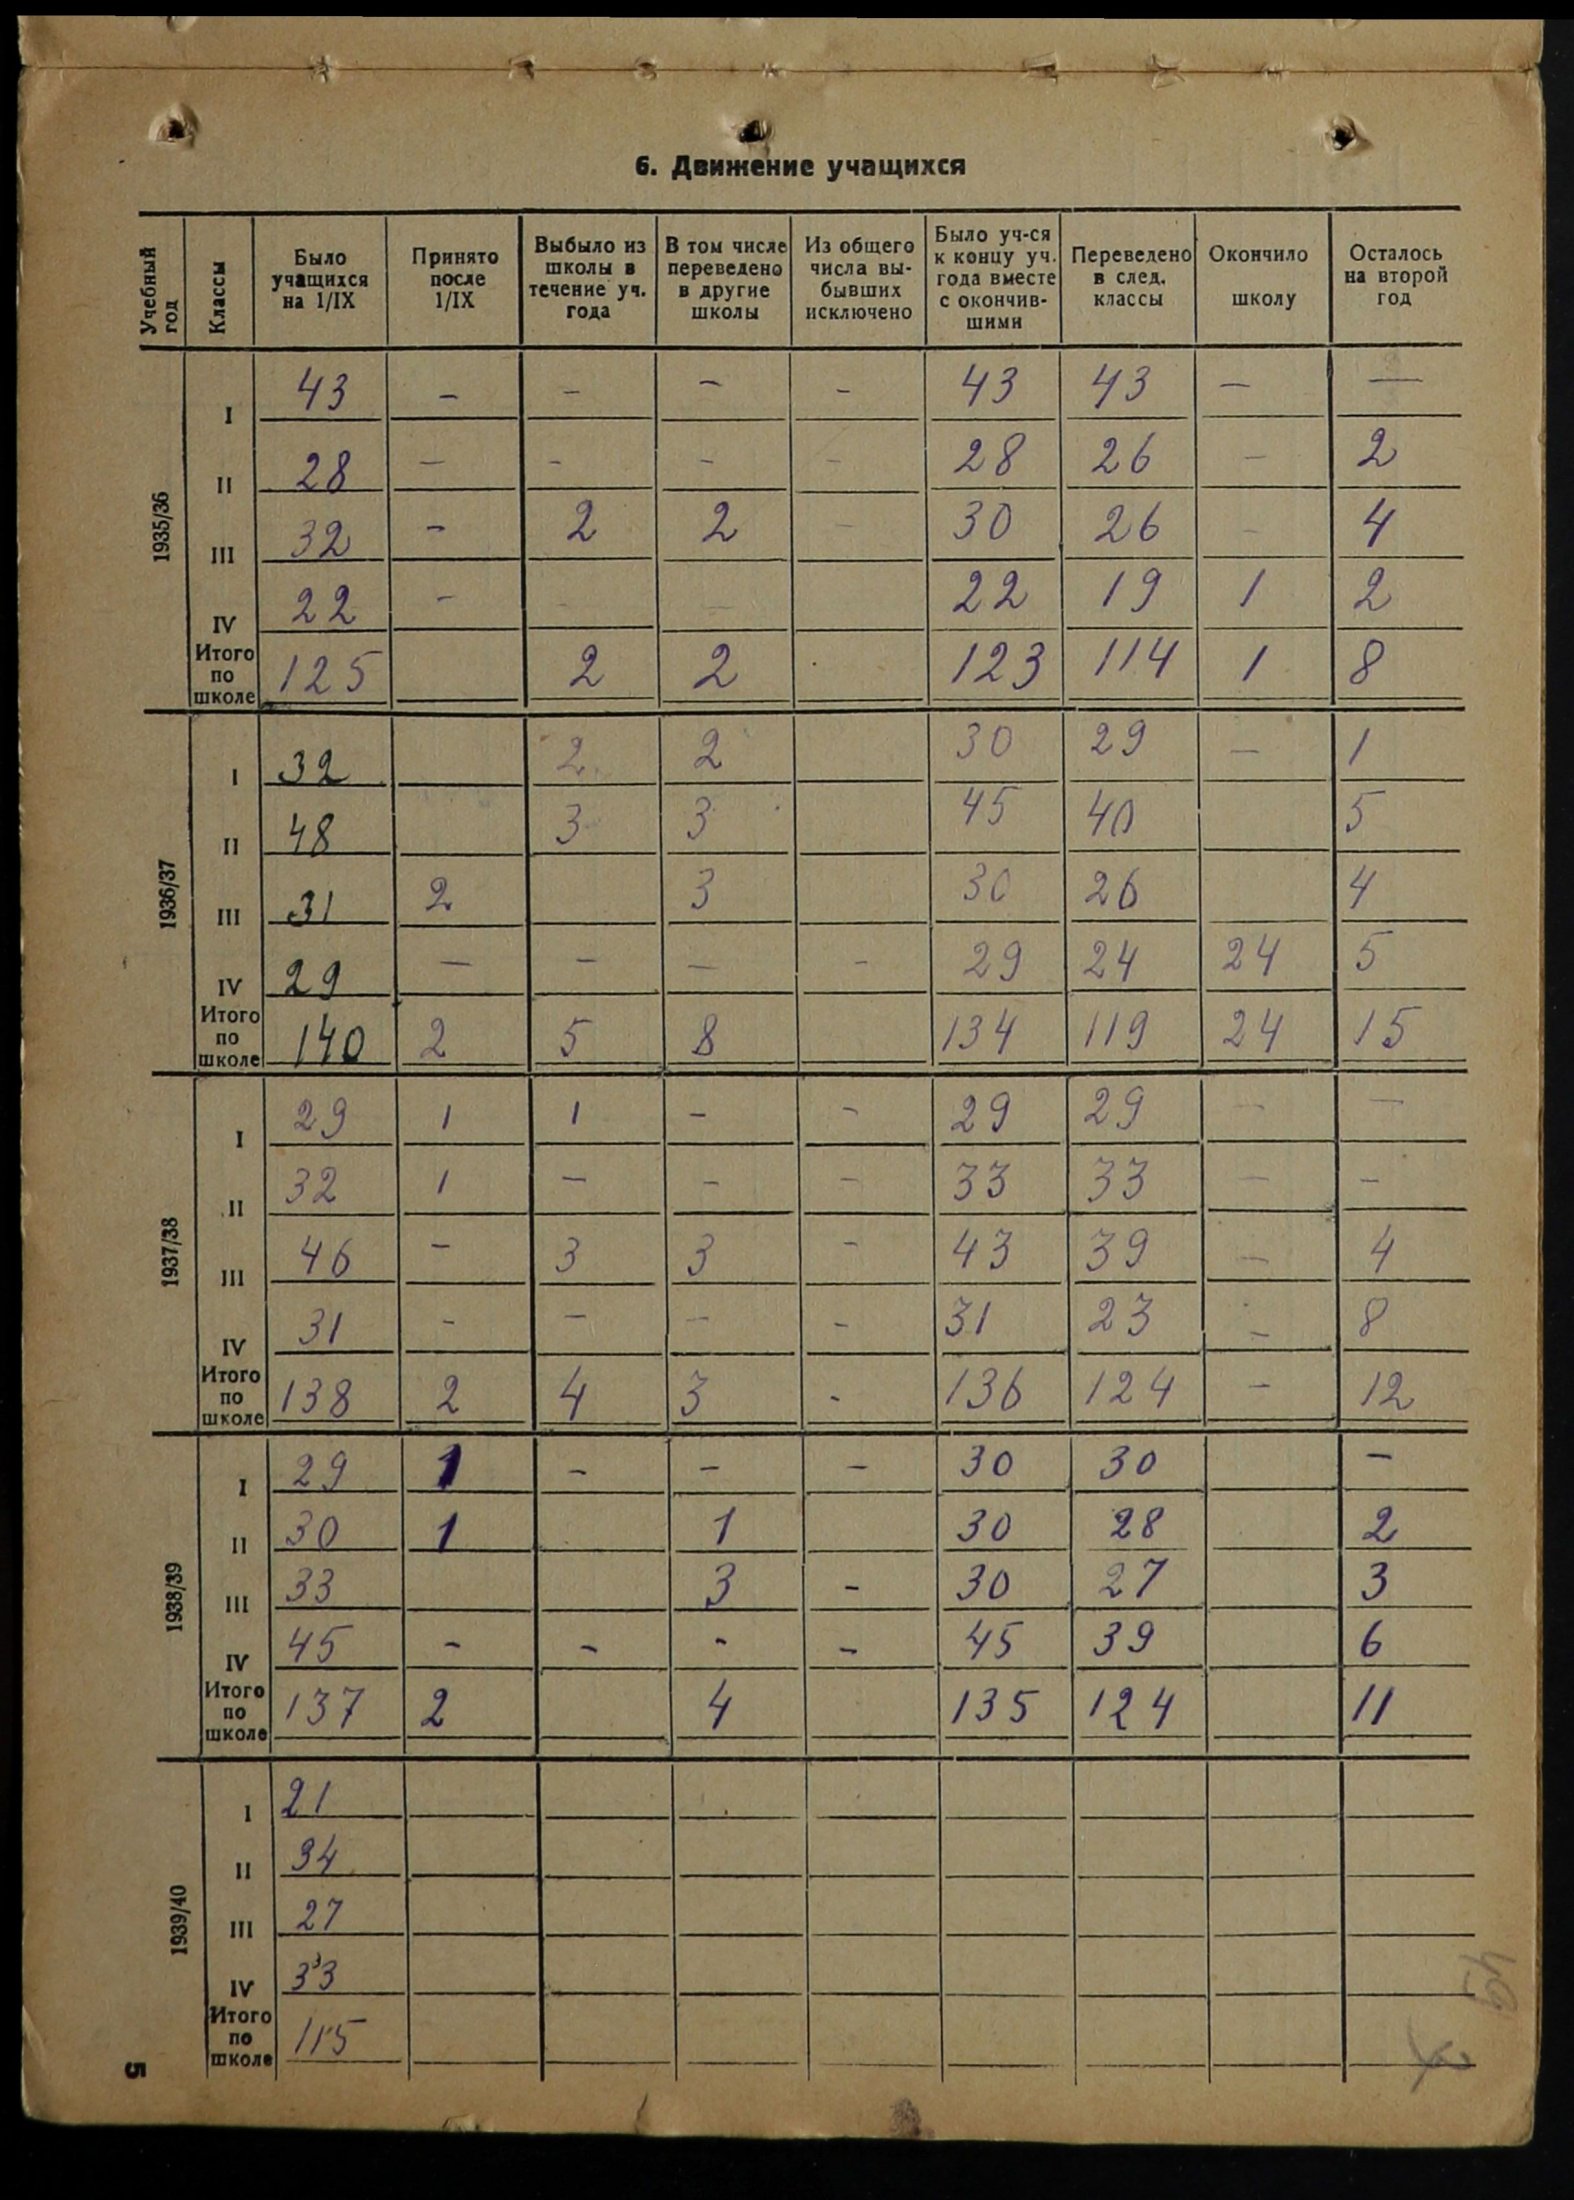 6. Движение учащихся
Учебный год | Классы | Было учащихся на 1/IX | Принято после 1/IX | Выбыло из школы в течение уч. года | В том числе переведено в другие школы | Из общего числа выбывших исключено | Было уч-ся к концу уч. года вместе с окончившими | Переведено в след. классы | Окончило школу | Осталось на второй год
1935/36
I 43 – – – – 43 43 – –
II 28 – – – – 28 26 – 2
III 32 – 2 2 – 30 26 – 4
IV 22 – – – 22 19 1 2
Итого по школе 125 2 2 123 114 1 8
1936/37
I 32 2 2 30 29 – 1
II 48 3 3 45 40 5
III 31 2 3 30 26 4
IV 29 – – – – 29 24 24 5
Итого по школе 140 2 5 8 134 119 24 15
1937/38
I 29 1 1 – – 29 29 – –
II 32 1 – – – 33 33 – –
III 46 – 3 3 – 43 39 – 4
IV 31 – – – – 31 23 – 8
Итого по школе 138 2 4 3 - 136 124 – 12
1938/39
I 29 1 – – – 30 30 –
II 30 1 1 30 28 2
III 33 3 – 30 27 3
IV 45 – – - – 45 39 6
Итого по школе 137 2 4 135 124 11
1939/40
I 21
II 34
III 27
IV 33
Итого по школе 115
5